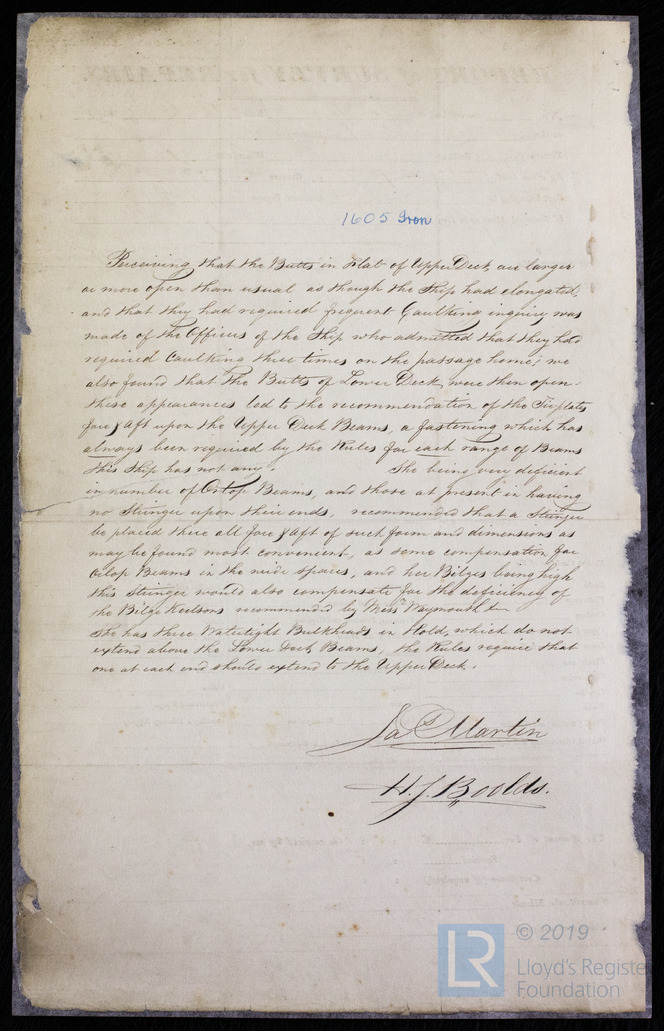 1605 Iron
Perceiving that the Butts in Flat of Upper Deck are larger
or more open than usual as though the Ship had elongated,
and that they had required frequent Caulking inquiry was
made of the Officers of the Ship who admitted that they had
required Caulking three times on the passage home; we
also found that the Butts of Lower Deck were then open.
these appearances led to the recommendation of the Tieplates
fore & Aft upon the Upper Deck Beams, a fastening which has
always been required by the Rules for each range of Beams
this Ship has not any. She being very deficient
in number of Orlop Beams, and those at present in having
no Stringer upon their ends, recommended that a Stringer
be placed there all fore & Aft of such form and dimensions as
may be found most convenient, as some compensation for
Orlop Beams in the wide spaces, and her Bilges being high
this Stringer would also compensate for the deficiency of
the Bilge Keelsons recommended by Messrs Waymouth &
She has three Watertight Bulkheads in Hold, which do not
extend above the Lower Deck Beams, the Rules require that
one at each end should extend to the Upper Deck.
Jas Martin
H. J. Boolds.
LR
© 2019
Lloyd's Register
Foundation